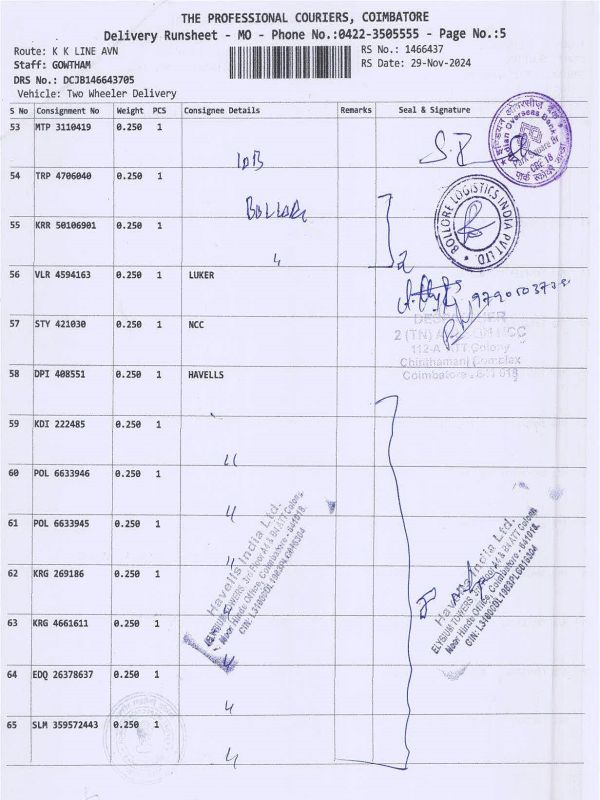 THE PROFESSIONAL COURIERS, COIMBATORE
Delivery Runsheet - MO - Phone No.:0422-3505555 - Page No.:5
Route: K K LINE AVN
RS No.: 1466437
Staff: GOWTHAM
RS Date: 29-Nov-2024
DRS No.: DCJB146643705
Vehicle: Two Wheeler Delivery
S No Consignment No Weight PCS Consignee Details Remarks Seal & Signature
53 MTP 3110419 0.250 1
IOB
Indian Overseas Bank
54 TRP 4706040 0.250 1
BOLLORE
BOLLORE LOGISTICS INDIA PVT LTD
55 KRR 50106901 0.250 1
56 VLR 4594163 0.250 1 LUKER
57 STY 421030 0.250 1 NCC
2 (TN)
NCC
Colony
Chinthamani Complex
Coimbatore
58 DPI 408551 0.250 1 HAVELLS
59 KDI 222485 0.250 1
60 POL 6633946 0.250 1
61 POL 6633945 0.250 1
62 KRG 269186 0.250 1
63 KRG 4661611 0.250 1
64 EDQ 26378637 0.250 1
65 SLM 359572443 0.250 1
Havells India Ltd.
ELYSIUM TOWERS
Near Hindu Office, Coimbatore - 641018.
Havells India Ltd.
ELYSIUM TOWERS
Near Hindu Office, Coimbatore - 641018.